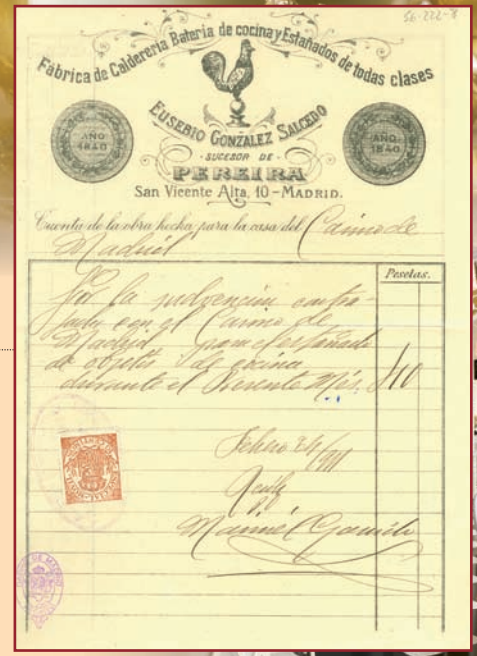 56-222-78
Fábrica de Calderería Batería de cocina y Estañados de todas clases
AÑO
1840
EUSEBIO GONZÁLEZ SALCEDO
AÑO
1840
- SUCESOR DE -
PEREIRA
San Vicente Alta, 10 - MADRID.
Cuenta de la obra hecha para la casa del Casino de
Madrid
Pesetas.
Por la subvención contra-
tada con el Casino de
Madrid para el estañado
de objetos de cocina
durante el Presente Mes. 40
Febrero 24/911
Recibí
Manuel